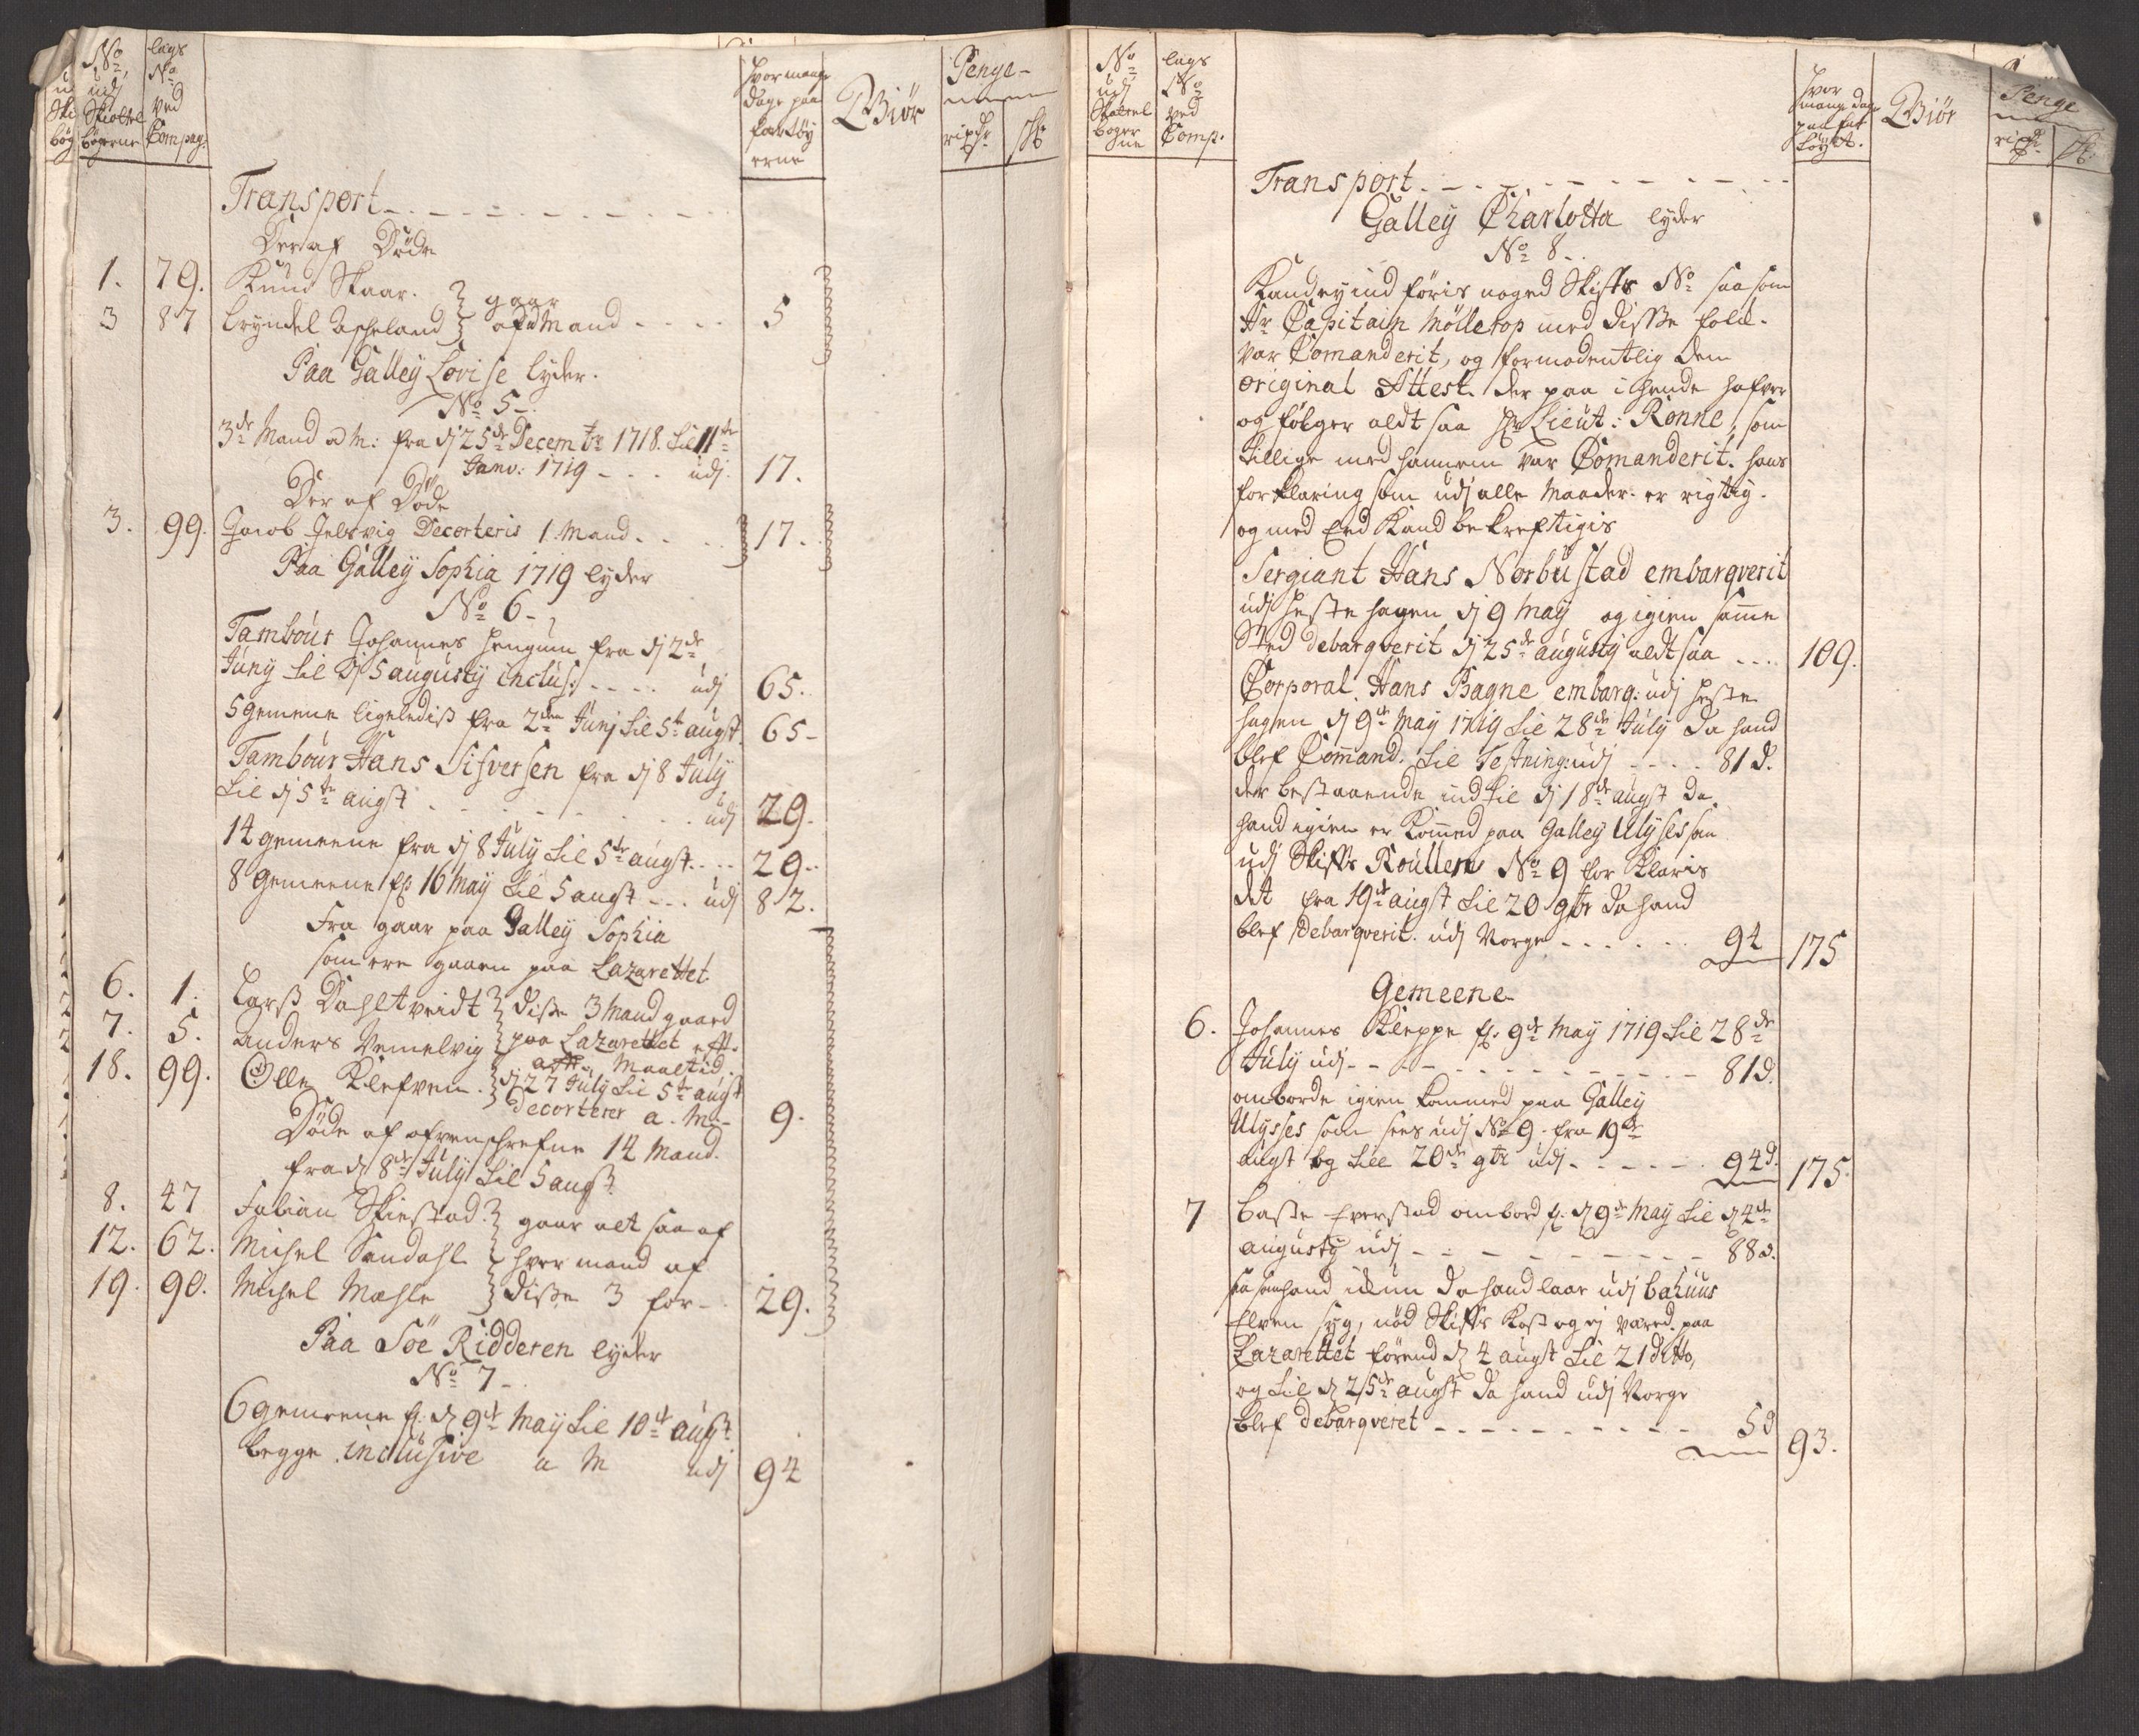 No
udj
Skottel
bøgerne
lags
No
ved
Compag:
hvor mange
dage paa
fartöy
erne
Biör
Penge
rixdr
sk
Transport
Deraf Döde
1. 79. Knud Skaar. gaar
3 87 Bryndel Ascheland af d Mand 5
Paa Galley Lovise lyder.
No 5
3de Mand a M: fra dj 25de Decembr 1718. til 11te
Janv: 1719 udj 17.
Der af Döde
3. 99. Jacob Jelsvig Decorteris 1. Mand 17.
Paa Galley Sophia 1719 lyder
No 6
Tambour Johannes Hengum fra dj 2de
Juny til dj 5 augusty inclus: udj 65.
5 gemene ligelediss fra 2den Junj til 5te augst 65
Tambour Hans Sifversen fra dj 8 July
til dj 5te augst udj 29.
14 gemeene fra dj 8 July til 5te augst 29.
8 gemeene fr 16 May til 5 augst udj 82.
Fra gaar paa Galley Sophia
som ere gaaen paa Lazarettet
6. 1. Larss Dahltveidt disse 3 Mand gaaed
7. 5. Anders Vemelvig paa Lazarettet eft.
Maaltid
18. 99. Olle Klefven. dj 27 July til 5te augst
decorterer a. M 9.
Döde af ofvenschrefne 14 Mand.
fra dj 8de July til 5 augst
8. 47 Fabian Skiestad gaar alt saa af
12. 62. Michel Sandahl hver mand af
19. 90. Michel Mæhle disse 3 for 29.
Paa Söe Ridderen lyder
No 7
6 gemeene fr. dj 9de May til 10de augst
begge inclusive a M udj 94
No
udj
Skottel
boger
ne
lags
No
ved
Comp.
hvor
mange dage
paa far
töyet.
Biör
Penge
rixdr
sk
Transport
Galley Charlotta lyder
No 8
Kand ey ind föris noged Skifts No saa som
Hr Capitain Mölletop med disse folk
var Comanderit, og formodentlig dem
original Attest. der paa i hende hafver
og fölger aldt saa Hr Lieut: Ronne, som
tillige med hannem var Comanderit. hans
forklaring som udj alle maader er rigtig.
og med Eed Kand bekreftigis
Sergiant Hans Norbustad embarqverit
udj Hestehagen dj 9 May og igien samme
Sted debarqverit dj 25de augusty aldt saa 109.
Corporal Hans Bagne embarq: udj Heste
hagen dj 9de May 1719 til 28de July da hand
blef Command. til Festning: udj 81 d.
der bestaaende ind til dj 18de augst da
hand igien er Kommed paa Galley Ulysses som
udj Skifts Roullen No 9 for Klaris
det fra 19de augst til 20 9br da hand
blef debarqverit. udj Norge 94 175
Gemeene
6. Johannes Kleppe fr. 9de May 1719 til 28de
July udj 81 d.
omborde igien kommed paa Galley
Ulysses som sees udj No 9. fra 19de
augst og till 20de 9br udj 94 d. 175.
7 Baste Everstad ombord fr. dj 9de May til dj 4de
augusty udj 88 d.
da hand laae udj Bahuus
Elven syg, nöd Skifts Kost og ej vared paa
Lazarettet förend dj 4 augst til 21 ditto,
og til dj 25de augst da hand udj Norge
blef debarqveret 5 d 93.